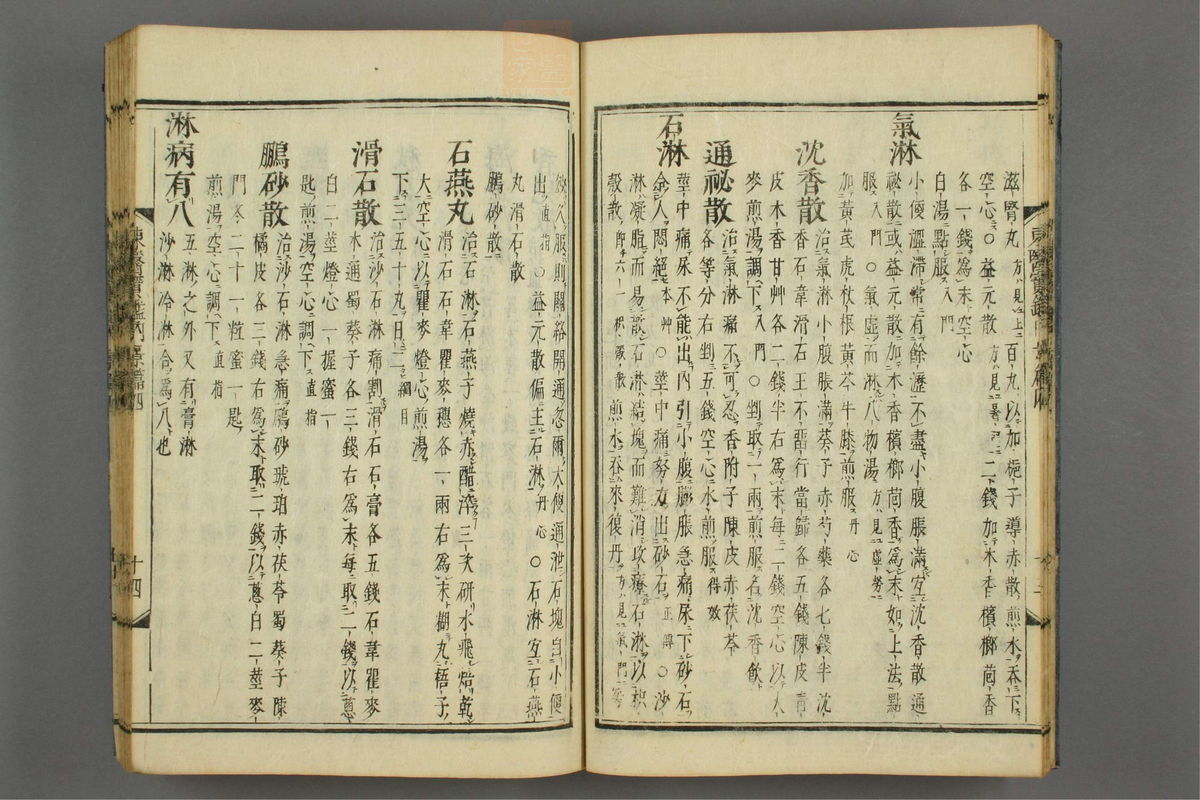 滋腎丸方見上百丸以加梔子導赤散煎水吞下
空心○益元散方見暑門二錢加木香檳榔茴香
各一錢爲末空心
白湯點服入門
氣淋
小便澁滯常有餘瀝不盡小腹脹滿宜沈香散通
祕散或益元散加木香檳榔茴香爲末如上法點
服入門○氣虛而淋八物湯方見虛勞
加黃芪虎杖根黃芩牛膝煎服丹心
沈香散
治氣淋小腹脹滿葵子赤芍藥各七錢半沈
香石韋滑石王不留行當歸各五錢陳皮靑
皮木香甘艸各二錢半右爲末每二錢空心以大
麥煎湯調下入門○剉取一兩煎服名沈香飮
通祕散
治氣淋痛不可忍香附子陳皮赤茯苓
各等分右剉五錢空心水煎服得效
石淋
莖中痛尿不能出內引小腹膨脹急痛尿下砂石
令人悶絕本艸○莖中痛努力出砂石正傳○沙
淋凝脂而易散石淋結塊而難消攻療石淋以枳
殼散卽六一枳殼散煎水吞來復丹方見氣門
久服則關絡開通忽爾大便通泄石塊自小便
出直指○益元散偏主石淋丹心○石淋宜石燕
丸滑石散
鵬砂散
石燕丸
治石淋石燕子燒赤醋淬三次硏水飛焙乾
滑石石韋瞿麥穗各一兩右爲末糊丸梧子
大空心以瞿麥燈心煎湯
下三五十丸日二三綱目
滑石散
治沙石淋痛割滑石石膏各五錢石韋瞿麥
木通蜀葵子各三錢右爲末每取二錢以葱
白二莖燈心一握蜜一
匙煎湯空心調下直指
鵬砂散
治沙石淋急痛鵬砂琥珀赤茯苓蜀葵子陳
橘皮各三錢右爲末取二錢以葱白二莖麥
門冬二十一粒蜜一匙
煎湯空心調下直指
淋病有八
五淋之外又有膏淋
沙淋冷淋合爲八也
東醫寶鑑內景篇四
十四